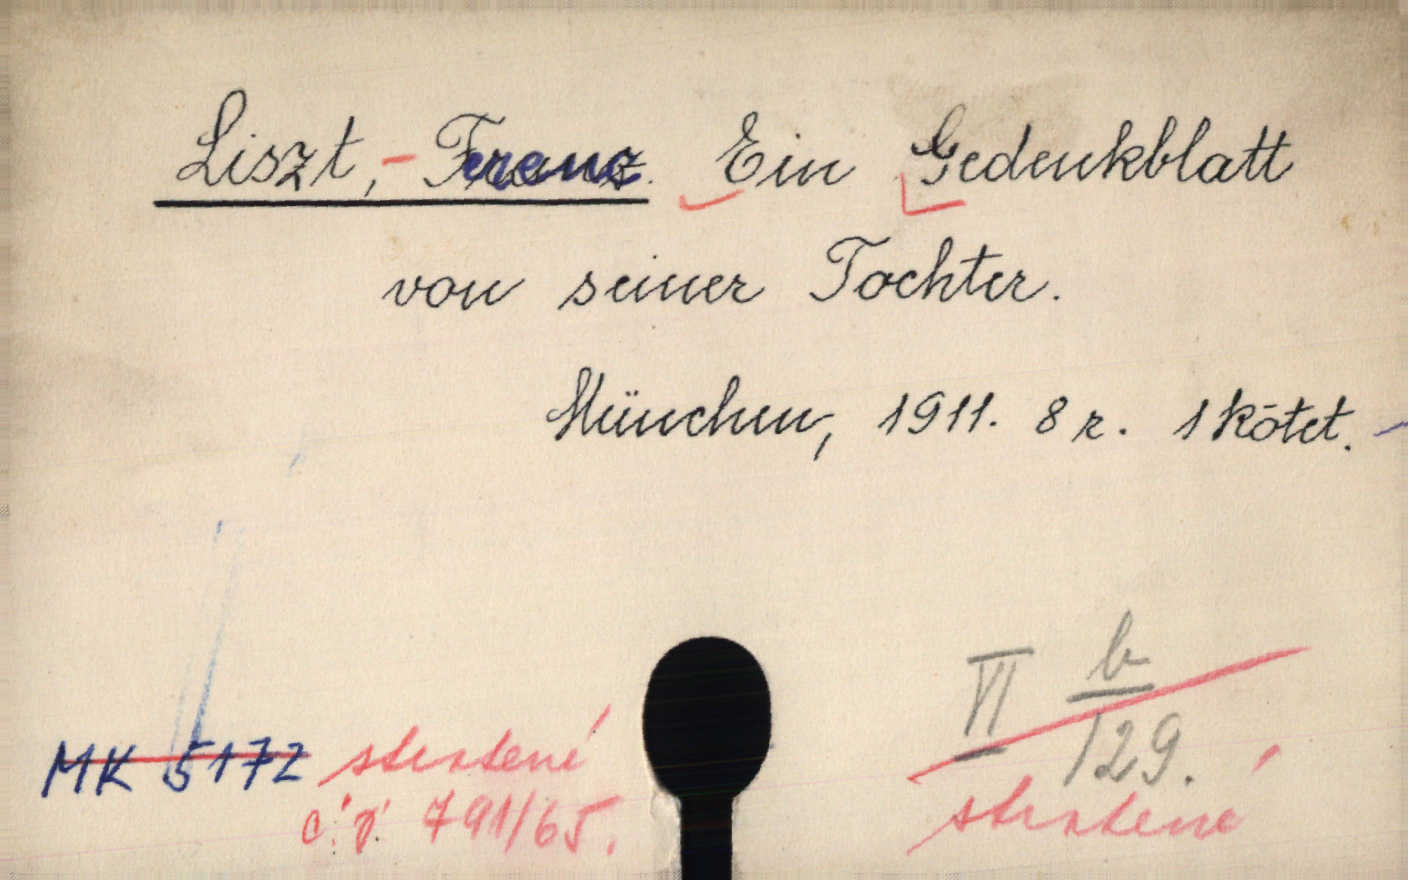 Liszt, - Ferenc. Ein Gedenkblatt
von seiner Tochter.
München, 1911. 8 r. 1 kötet.
VI b/129.
MK 5172 stratené
č. j. 791/65.
stratené